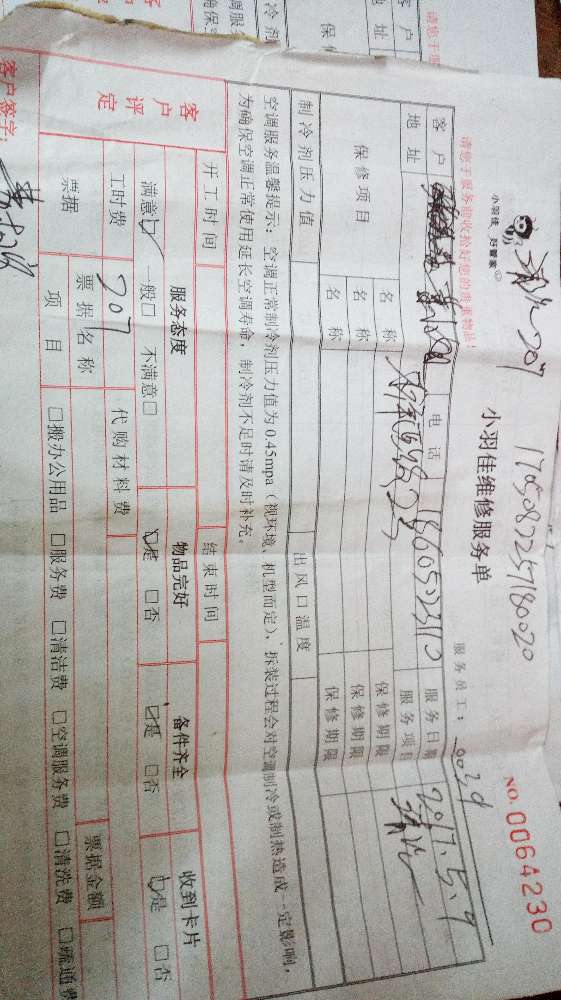 请您于服务前收拾好您的贵重物品!
小羽佳 好管家
207
170508725718002O
NO. 0064230
小羽佳维修服务单
服务员工: 0029
客户 电话 服务日期 2017.5.9
地址 服务项目
保修项目 名称 保修期限
名称 保修期限
名称 保修期限
制冷剂压力值 出风口温度
空调服务温馨提示:空调正常制冷剂压力值为0.45mpa(视环境、机型而定)、拆装过程会对空调制冷或制热造成一定影响,
为确保空调正常使用延长空调寿命,制冷剂不足时请及时补充。
开工时间 结束时间
客户评定 服务态度 物品完好 备件齐全 收到卡片
满意☑ 一般□ 不满意□ ☑是 □否 ☑是 □否 ☑是 □否
工时费 207 代购材料费
票据 票据名称 票据金额
项目 □搬办公用品 □服务费 □清洁费 □空调服务费 □清洗费 □疏通费
客户签字: